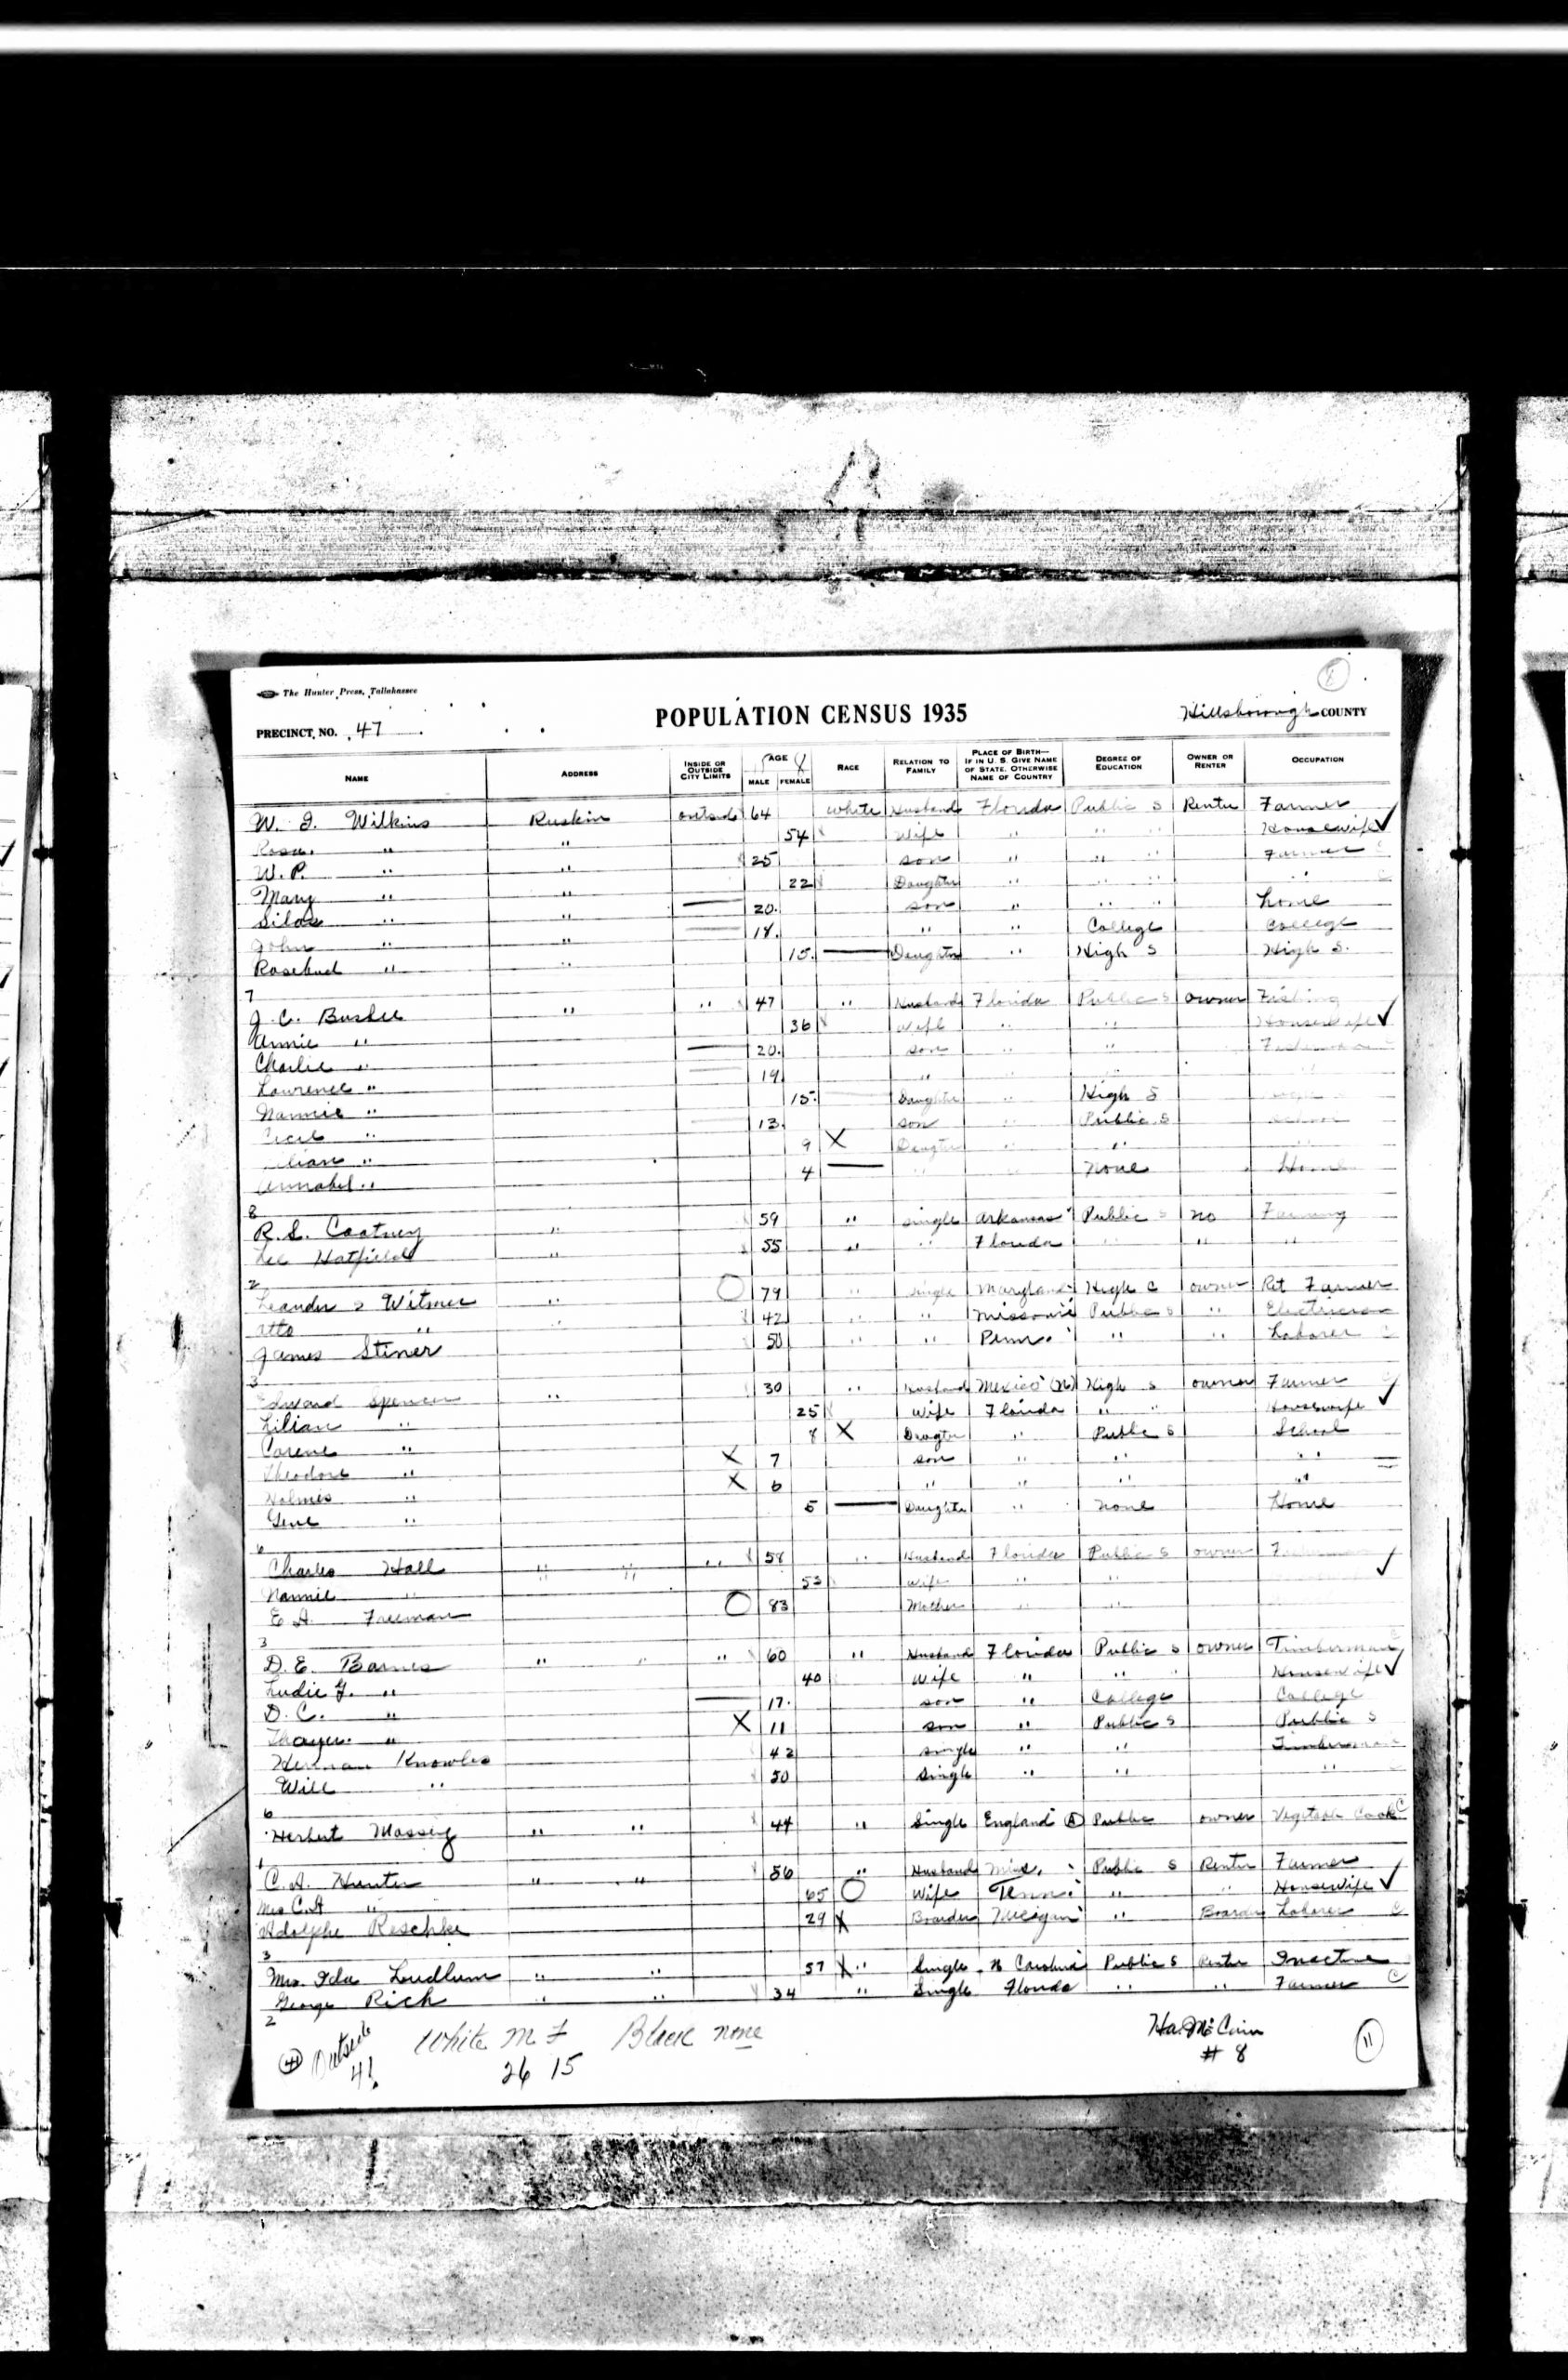 The Hunter Press, Tallahassee
8
POPULATION CENSUS 1935
PRECINCT NO. 47
Hillsborough COUNTY
NAME ADDRESS INSIDE OR OUTSIDE CITY LIMITS AGE MALE FEMALE RACE RELATION TO FAMILY PLACE OF BIRTH—IF IN U. S. GIVE NAME OF STATE. OTHERWISE NAME OF COUNTRY DEGREE OF EDUCATION OWNER OR RENTER OCCUPATION
Wilkins Ruskin outside 64 white Husband Florida Public S Renter Farmer
Rosa " " 54 Wife " " " Housewife ✓
W. P. " " 25 son " " " Farmer
Mary " " 22 Daughter " " " "
Silas " " — 20. son " " " home
John " " — 18. " " College College
Rosebud " " 15. — Daughter " High S High S.
7
J. C. " " 47 " Husband Florida Public S owner Fishing
Annie " 36 Wife " " Housewife ✓
Charlie " — 20. son " "
Lawrence " — 19 " " "
Nannie " 15. Daughter " High S
Cecil " — 13. son " Public S School
" 9 X Daughter " " "
Annabel " 4 — " " none Home
8
R. S. " 59 " single Arkansas Public S no Farming
Lee Hatfield " 55 " " Florida " " "
2
Leander S Witmer " O 79 " single Maryland High C owner Ret Farmer
Otto " " 42 " " Missouri Public S " Electrician
James Stiner 50 " " Penn. " " Laborer C
3
Edward Spencer " 30 " Husband Mexico (N) High S owner Farmer
Lilian " 25 Wife Florida " " Housewife ✓
Corene " 8 X Daughter " Public S School
Theodore " X 7 son " " "
Holmes " X 6 " " " "
Gene " 5 — Daughter " none Home
6
Charles Hall " " " 58 " Husband Florida Public S owner
Nannie " 53 Wife " " ✓
E. A. Freeman O 83 Mother " "
3
D. E. Barnes " " " 60 " Husband Florida Public S owner Timberman
Ludie " 40 Wife " " " Housewife ✓
D. C. " — 17. son " College College
Thayer " X 11 son " Public S Public S
Herman Knowles 42 single " " Timberman
Will " 50 single " " "
6
Herbert Massey " " 44 " Single England (A) Public owner Vegetable Cook C
1
C. A. Hunter " " 56 " Husband Public S Renter Farmer
Mrs C. A " 65 O Wife Tenn. " " Housewife ✓
Adolphe Reschke 29 X Boarder " Boarder Laborer C
3
Mrs. Ida Ludlum " " 57 X " Single N Carolina Public S Renter Inactive
George Rich " " 34 " Single Florida " " Farmer C
2
41 Outside 41 White M F Black none
26 15
# 8
11